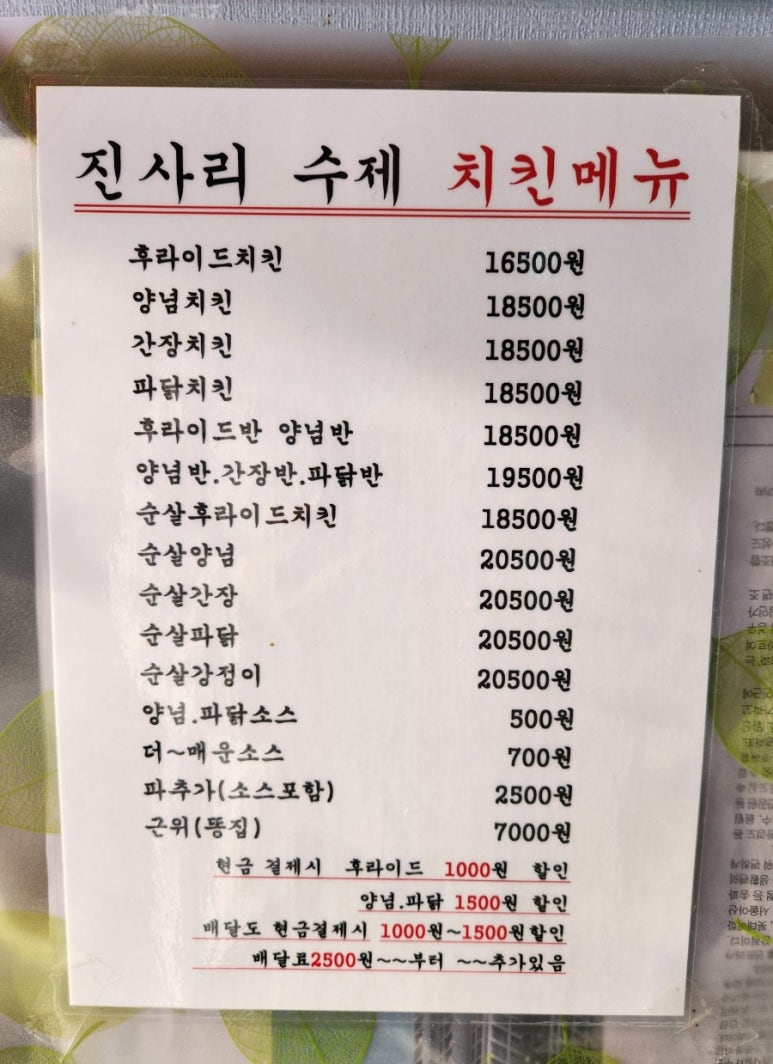 진사리 수제 치킨메뉴
후라이드치킨 16500원
양념치킨 18500원
간장치킨 18500원
파닭치킨 18500원
후라이드반 양념반 18500원
양념반.간장반.파닭반 19500원
순살후라이드치킨 18500원
순살양념 20500원
순살간장 20500원
순살파닭 20500원
순살강정이 20500원
양념.파닭소스 500원
더~매운소스 700원
파추가(소스포함) 2500원
근위(똥집) 7000원
현금 결제시 후라이드 1000원 할인
양념.파닭 1500원 할인
배달도 현금결제시 1000원~1500원할인
배달료2500원~~부터 ~~추가있음